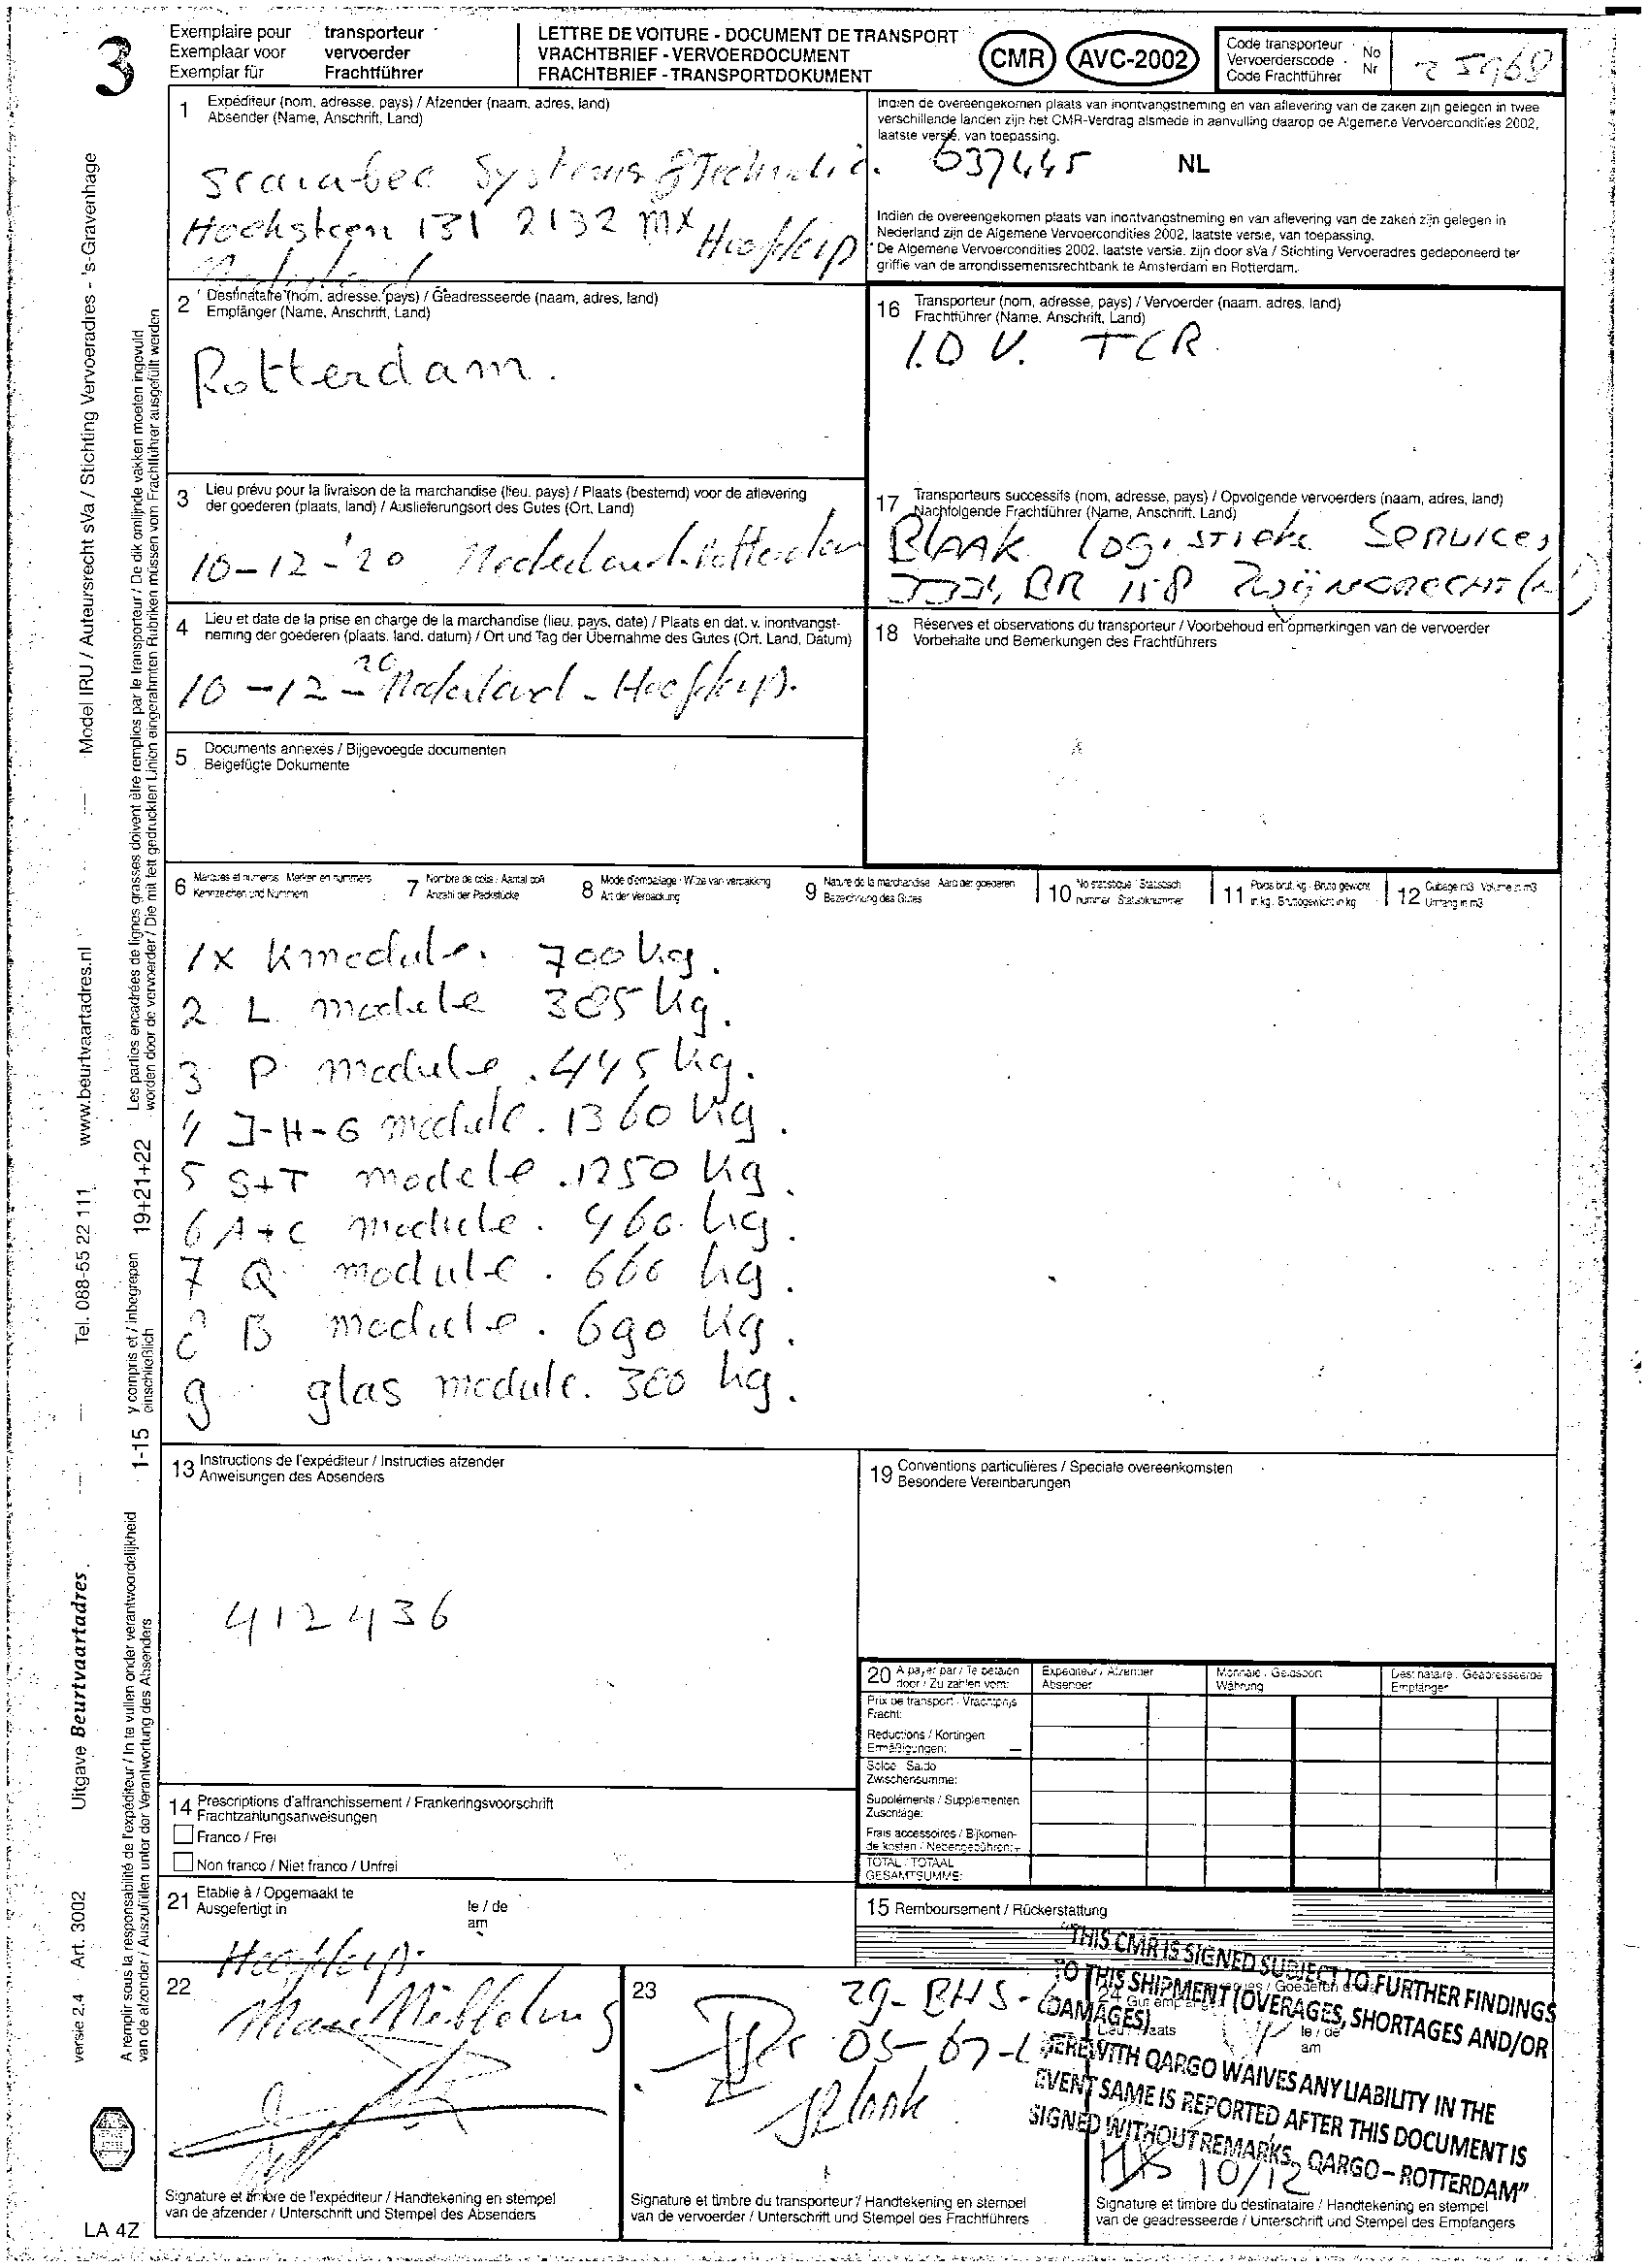 3
Exemplaire pour transporteur
Exemplaar voor vervoerder
Exemplar für Frachtführer
LETTRE DE VOITURE - DOCUMENT DE TRANSPORT
VRACHTBRIEF - VERVOERDOCUMENT
FRACHTBRIEF - TRANSPORTDOKUMENT
CMR AVC-2002
Code transporteur
Vervoerderscode
Code Frachtführer
No
Nr
1 Expéditeur (nom, adresse, pays) / Afzender (naam, adres, land)
Absender (Name, Anschrift, Land)
Systems &
131 2132 MX Hoofddorp
Indien de overeengekomen plaats van inontvangstneming en van aflevering van de zaken zijn gelegen in twee
verschillende landen zijn het CMR-Verdrag alsmede in aanvulling daarop de Algemene Vervoercondities 2002,
laatste versie, van toepassing.
637445 NL
Indien de overeengekomen plaats van inontvangstneming en van aflevering van de zaken zijn gelegen in
Nederland zijn de Algemene Vervoercondities 2002, laatste versie, van toepassing.
De Algemene Vervoercondities 2002, laatste versie, zijn door sVa / Stichting Vervoeradres gedeponeerd ter
griffie van de arrondissementsrechtbank te Amsterdam en Rotterdam.
2 Destinataire (nom, adresse, pays) / Geadresseerde (naam, adres, land)
Empfänger (Name, Anschrift, Land)
Rotterdam.
16 Transporteur (nom, adresse, pays) / Vervoerder (naam, adres, land)
Frachtführer (Name, Anschrift, Land)
I.O V. TCR.
3 Lieu prévu pour la livraison de la marchandise (lieu, pays) / Plaats (bestemd) voor de aflevering
der goederen (plaats, land) / Auslieferungsort des Gutes (Ort, Land)
10-12-'20 Nederland-Rotterdam
17 Transporteurs successifs (nom, adresse, pays) / Opvolgende vervoerders (naam, adres, land)
Nachfolgende Frachtführer (Name, Anschrift, Land)
BLAAK LOGISTIEKE SERVICES
BR 158 ZWIJNDRECHT
4 Lieu et date de la prise en charge de la marchandise (lieu, pays, date) / Plaats en dat. v. inontvangst-
neming der goederen (plaats, land, datum) / Ort und Tag der Übernahme des Gutes (Ort, Land, Datum)
10-12-20 Nederland - Hoofddorp.
18 Réserves et observations du transporteur / Voorbehoud en opmerkingen van de vervoerder
Vorbehalte und Bemerkungen des Frachtführers
5 Documents annexés / Bijgevoegde documenten
Beigefügte Dokumente
6 Marques et numéros · Merken en nummers
Kennzeichen und Nummern
7 Nombre de colis · Aantal colli
Anzahl der Packstücke
8 Mode d'emballage · Wijze van verpakking
Art der Verpackung
9 Nature de la marchandise · Aard der goederen
Bezeichnung des Gutes
10 No statistique · Statistisch
nummer · Statistiknummer
11 Poids brut, kg · Bruto gewicht
in kg · Bruttogewicht in kg
12 Cubage m3 · Volume in m3
Umfang in m3
1x K module. 700 kg.
2 L module 385 kg.
3 P module. 445 kg.
4 J-H-G module. 1360 kg.
5 S+T module. 1250 kg.
6 A+C module. 460 kg.
7 Q module. 660 kg.
8 B module. 690 kg.
9 glas module. 300 kg.
13 Instructions de l'expéditeur / Instructies afzender
Anweisungen des Absenders
412436
19 Conventions particulières / Speciale overeenkomsten
Besondere Vereinbarungen
20 A payer par / Te betalen
door / Zu zahlen vom:
Expéditeur / Afzender
Absender
Monnaie / Geldsoort
Währung
Destinataire / Geadresseerde
Empfänger
Prix de transport / Vrachtprijs
Fracht:
Réductions / Kortingen
Ermäßigungen: —
Solde / Saldo
Zwischensumme:
Suppléments / Supplementen
Zuschläge:
Frais accessoires / Bijkomen-
de kosten / Nebengebühren: +
TOTAL / TOTAAL
GESAMTSUMME:
14 Prescriptions d'affranchissement / Frankeringsvoorschrift
Frachtzahlungsanweisungen
Franco / Frei
Non franco / Niet franco / Unfrei
21 Etablie à / Opgemaakt te
Ausgefertigt in
le / de
am
Hoofddorp
15 Remboursement / Rückerstattung
22
23
29-BHS-
05-
Blaak
24
"THIS CMR IS SIGNED SUBJECT TO FURTHER FINDINGS
TO THIS SHIPMENT (OVERAGES, SHORTAGES AND/OR
DAMAGES)
HEREWITH QARGO WAIVES ANY LIABILITY IN THE
EVENT SAME IS REPORTED AFTER THIS DOCUMENT IS
SIGNED WITHOUT REMARKS, QARGO - ROTTERDAM"
le / de
am
10/12
Signature et timbre de l'expéditeur / Handtekening en stempel
van de afzender / Unterschrift und Stempel des Absenders
Signature et timbre du transporteur / Handtekening en stempel
van de vervoerder / Unterschrift und Stempel des Frachtführers
Signature et timbre du destinataire / Handtekening en stempel
van de geadresseerde / Unterschrift und Stempel des Empfängers
LA 4Z
versie 2.4 Art. 3002 Uitgave Beurtvaartadres Tel. 088-55 22 111 www.beurtvaartadres.nl Model IRU / Auteursrecht sVa / Stichting Vervoeradres - 's-Gravenhage
A remplir sous la responsabilité de l'expéditeur / In te vullen onder verantwoordelijkheid
van de afzender / Auszufüllen unter der Verantwortung des Absenders
1-15 y compris et / inbegrepen
einschließlich
19+21+22
Les parties encadrées de lignes grasses doivent être remplies par le transporteur / De dik omlijnde vakken moeten ingevuld
worden door de vervoerder / Die mit fett gedruckten Linien eingerahmten Rubriken müssen vom Frachtführer ausgefüllt werden